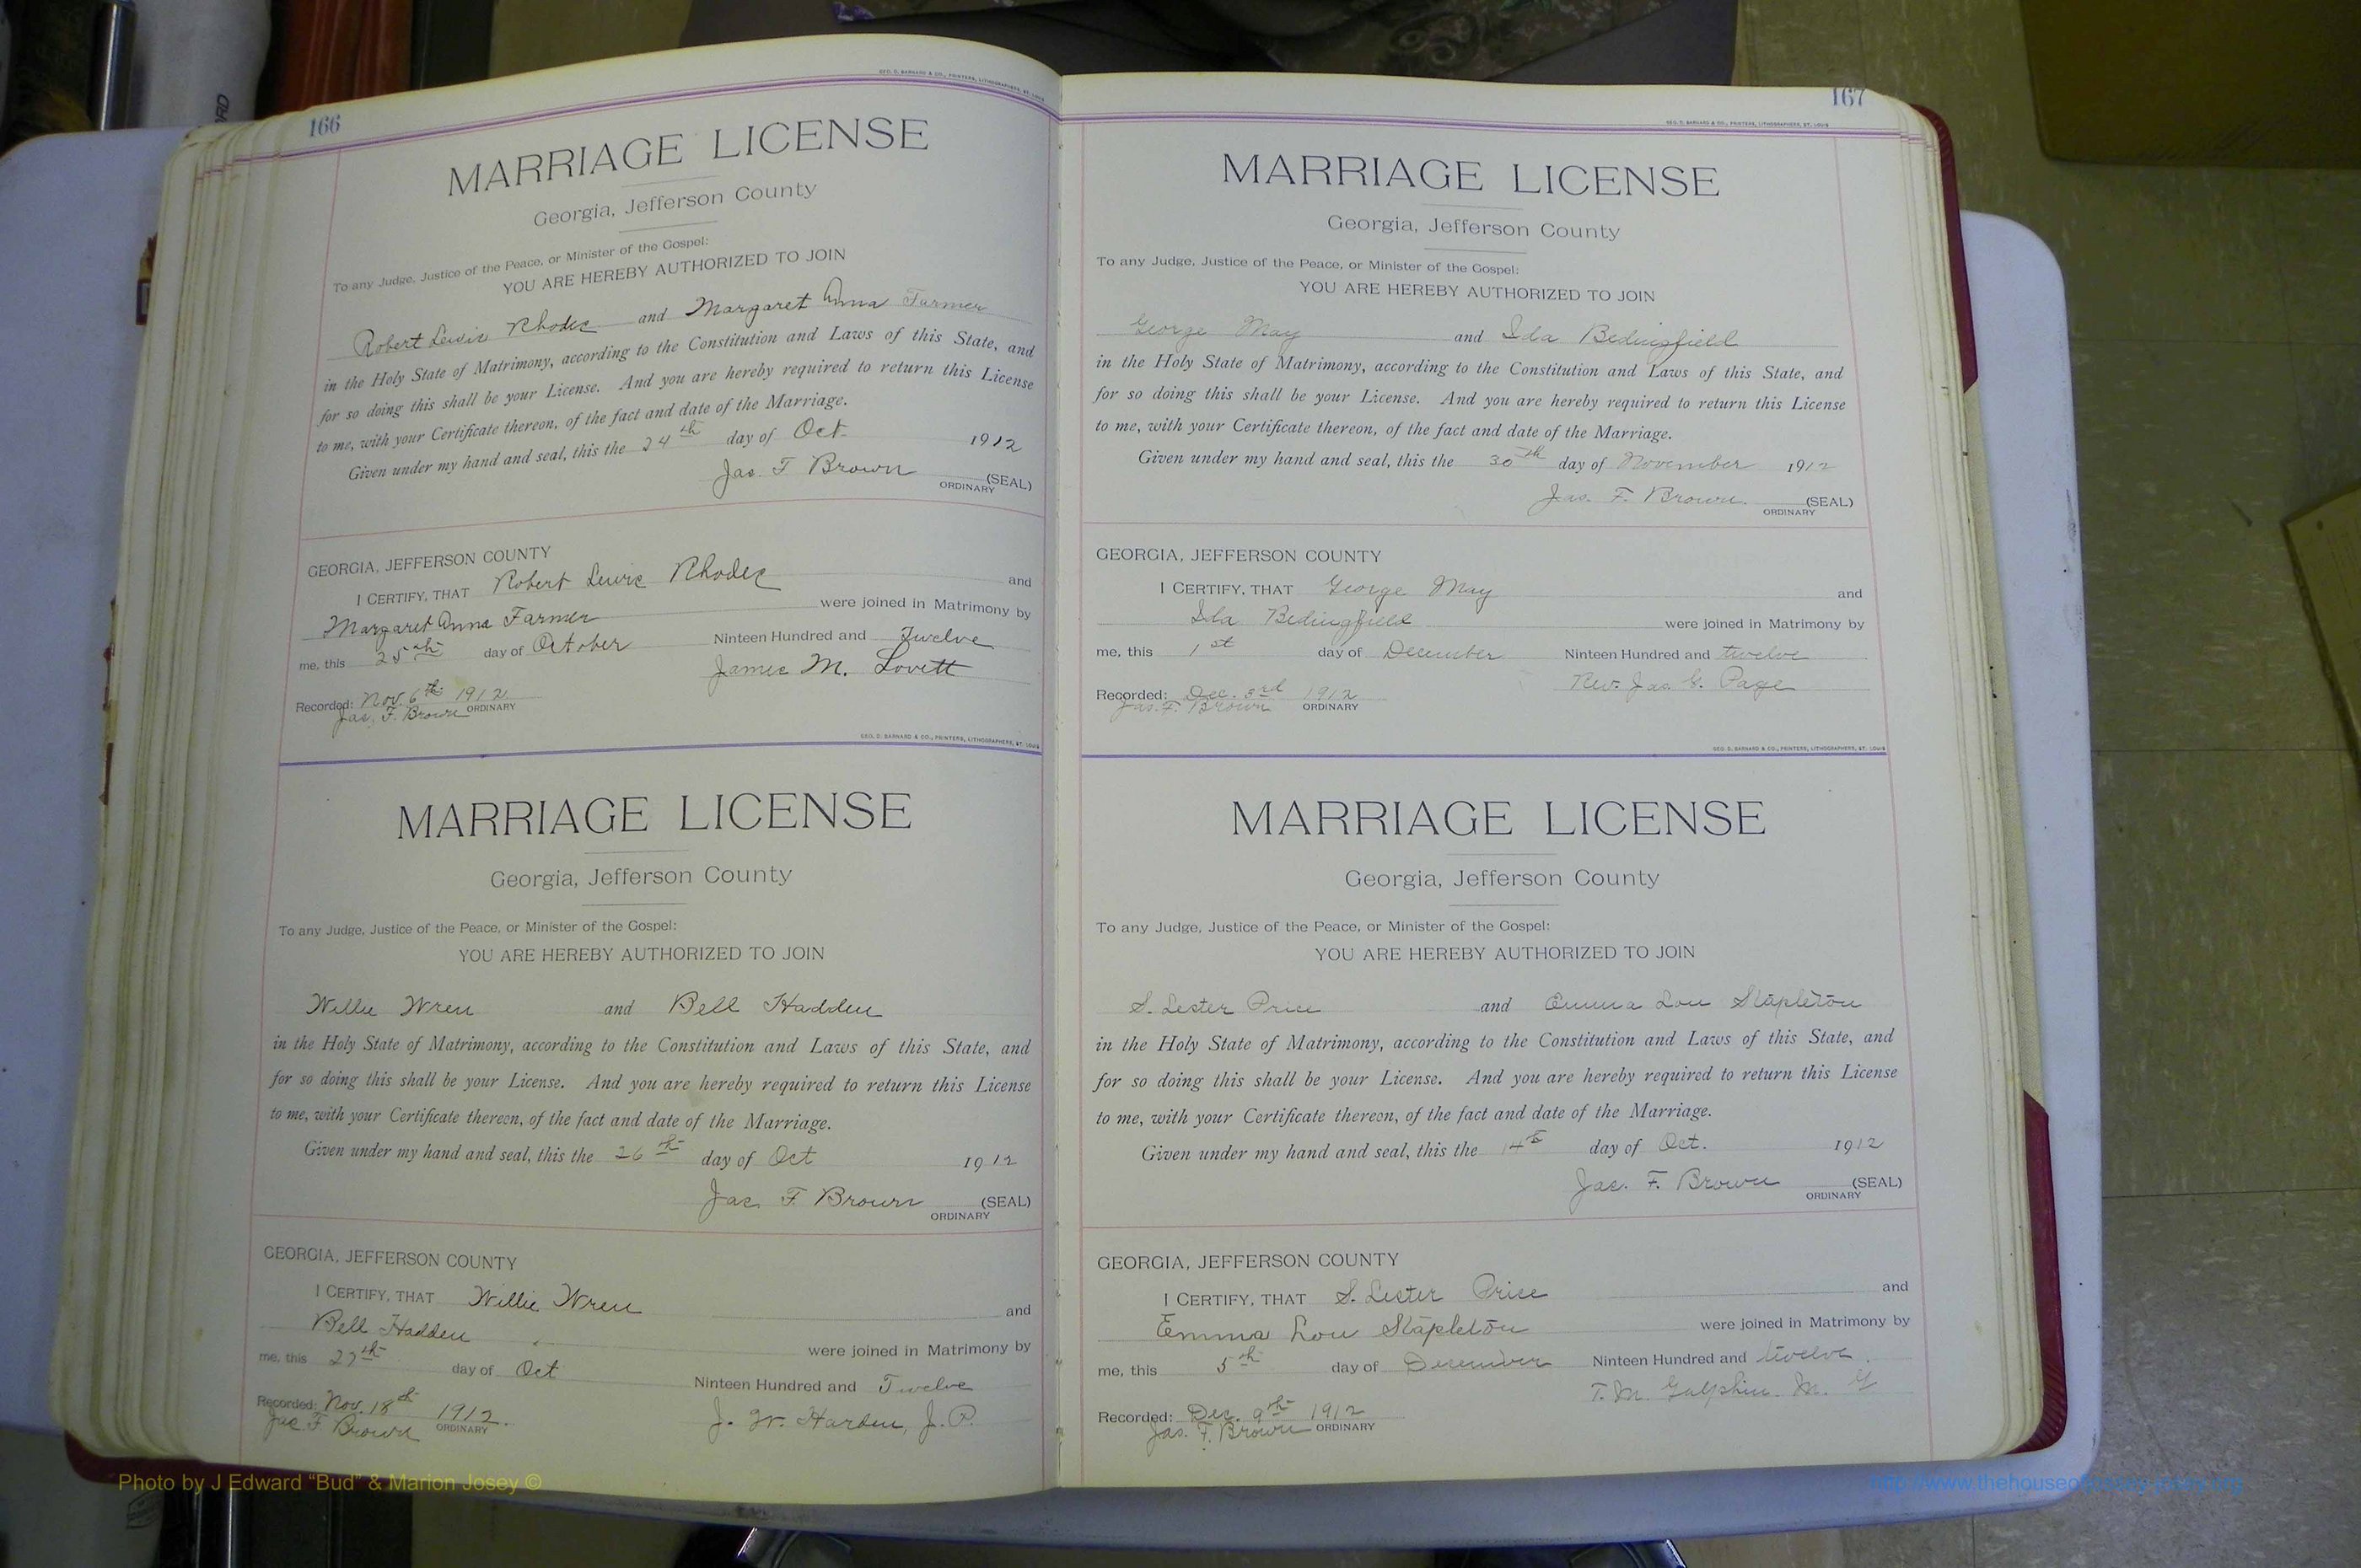 166
GEO. D. BARNARD & CO., PRINTERS, LITHOGRAPHERS, ST. LOUIS
MARRIAGE LICENSE
Georgia, Jefferson County
To any Judge, Justice of the Peace, or Minister of the Gospel:
YOU ARE HEREBY AUTHORIZED TO JOIN
Robert Lewis Rhodes and Margaret Anna Farmer
in the Holy State of Matrimony, according to the Constitution and Laws of this State, and
for so doing this shall be your License. And you are hereby required to return this License
to me, with your Certificate thereon, of the fact and date of the Marriage.
Given under my hand and seal, this the 24th day of Oct. 1912
Jas. F Brown (SEAL)
ORDINARY
GEORGIA, JEFFERSON COUNTY
I CERTIFY, THAT Robert Lewis Rhodes and
Margaret Anna Farmer were joined in Matrimony by
me, this 25th day of October Ninteen Hundred and Twelve
James M. Lovett
Recorded: Nov. 6th 1912
Jas. F. Brown ORDINARY
GEO. D. BARNARD & CO., PRINTERS, LITHOGRAPHERS, ST. LOUIS
MARRIAGE LICENSE
Georgia, Jefferson County
To any Judge, Justice of the Peace, or Minister of the Gospel:
YOU ARE HEREBY AUTHORIZED TO JOIN
Willie Wren and Bell Hadden
in the Holy State of Matrimony, according to the Constitution and Laws of this State, and
for so doing this shall be your License. And you are hereby required to return this License
to me, with your Certificate thereon, of the fact and date of the Marriage.
Given under my hand and seal, this the 26th day of Oct 1912
Jas. F. Brown (SEAL)
ORDINARY
GEORGIA, JEFFERSON COUNTY
I CERTIFY, THAT Willie Wren and
Bell Hadden were joined in Matrimony by
me, this 27th day of Oct Ninteen Hundred and Twelve
Recorded: Nov. 18th 1912. J. W. Harden, J. P.
Jas. F. Brown ORDINARY
167
GEO. D. BARNARD & CO., PRINTERS, LITHOGRAPHERS, ST. LOUIS
MARRIAGE LICENSE
Georgia, Jefferson County
To any Judge, Justice of the Peace, or Minister of the Gospel:
YOU ARE HEREBY AUTHORIZED TO JOIN
George May and Ida Bedingfield
in the Holy State of Matrimony, according to the Constitution and Laws of this State, and
for so doing this shall be your License. And you are hereby required to return this License
to me, with your Certificate thereon, of the fact and date of the Marriage.
Given under my hand and seal, this the 30th day of November 1912
Jas. F. Brown. (SEAL)
ORDINARY
GEORGIA, JEFFERSON COUNTY
I CERTIFY, THAT George May and
Ida Bedingfield were joined in Matrimony by
me, this 1st day of December Ninteen Hundred and twelve
Rev. Jas. G. Page
Recorded: Dec. 3rd 1912
Jas. F. Brown ORDINARY
GEO. D. BARNARD & CO., PRINTERS, LITHOGRAPHERS, ST. LOUIS
MARRIAGE LICENSE
Georgia, Jefferson County
To any Judge, Justice of the Peace, or Minister of the Gospel:
YOU ARE HEREBY AUTHORIZED TO JOIN
S. Lester Price and Emma Lou Stapleton
in the Holy State of Matrimony, according to the Constitution and Laws of this State, and
for so doing this shall be your License. And you are hereby required to return this License
to me, with your Certificate thereon, of the fact and date of the Marriage.
Given under my hand and seal, this the 14th day of Oct. 1912
Jas. F. Brown (SEAL)
ORDINARY
GEORGIA, JEFFERSON COUNTY
I CERTIFY, THAT S. Lester Price and
Emma Lou Stapleton were joined in Matrimony by
me, this 5th day of December Ninteen Hundred and twelve.
T. M. Galphin. M. G
Recorded: Dec. 9th 1912
Jas. F. Brown ORDINARY
Photo by J Edward “Bud” & Marion Josey ©